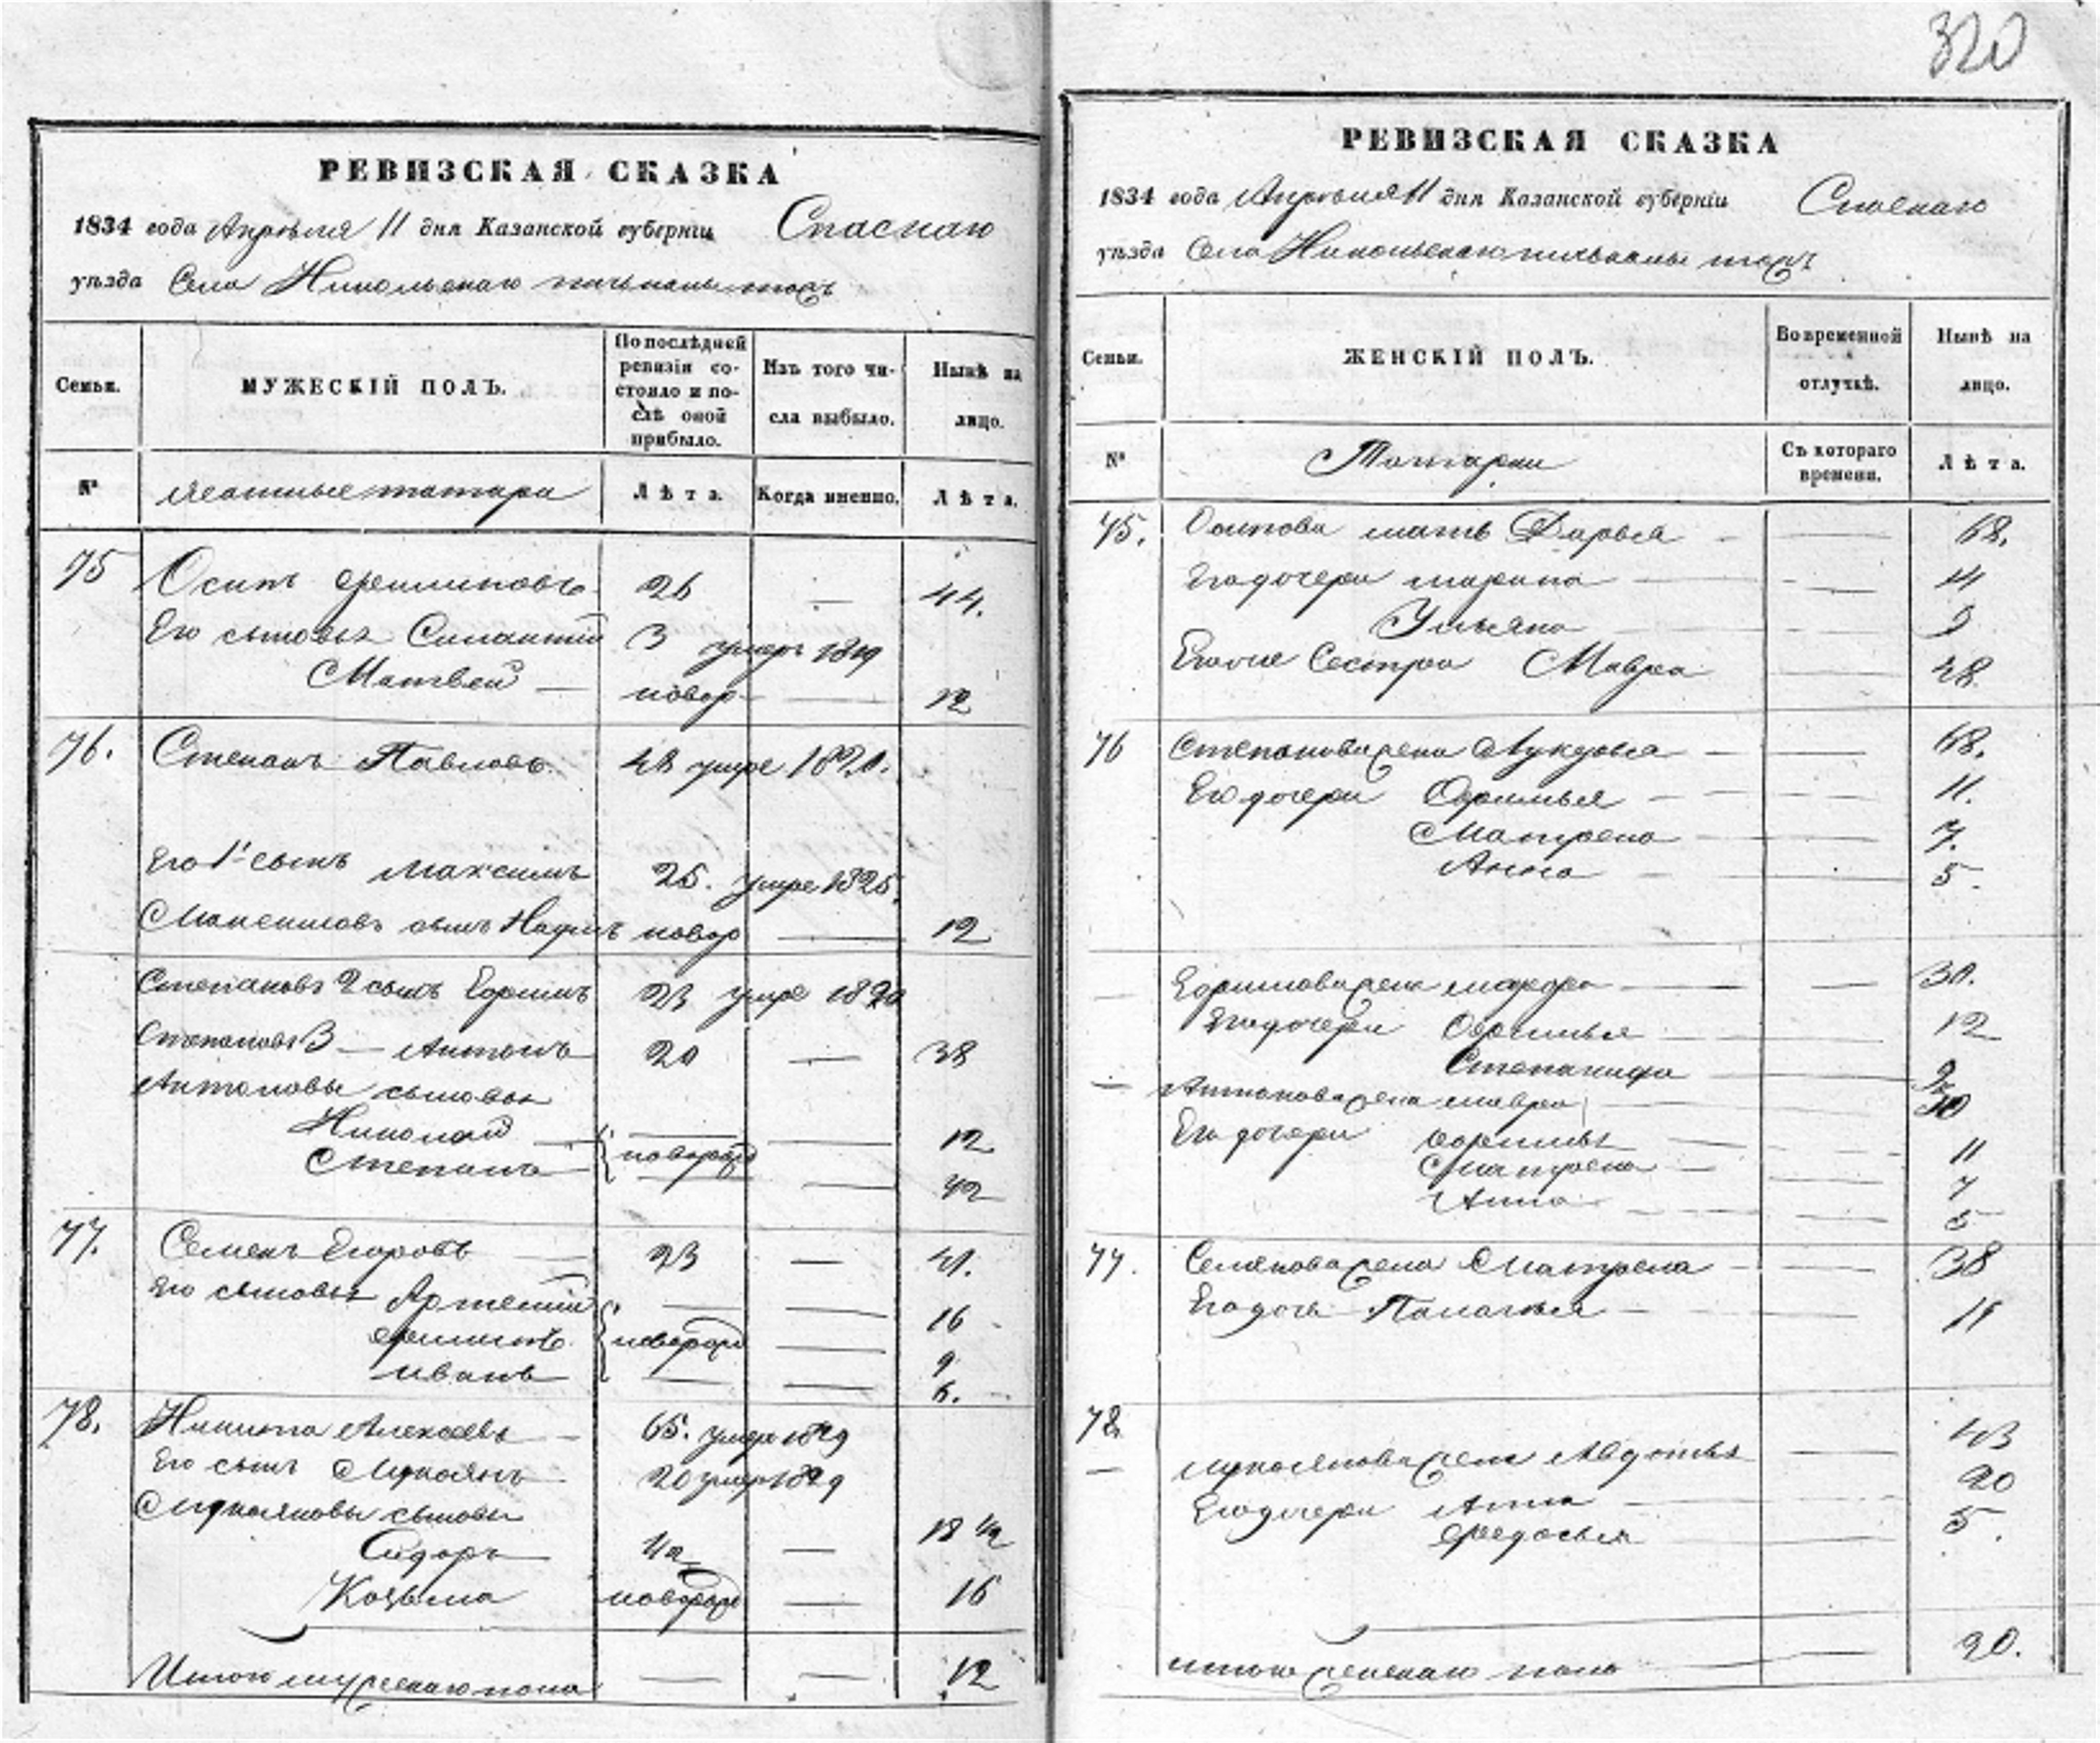 320
РЕВИЗСКАЯ СКАЗКА
1834 года Апрѣля 11 дня Казанской губерніи Спаскаго
уѣзда Села Никольскаго
Семьи.
МУЖЕСКІЙ ПОЛЪ.
По послѣдней ревизіи состояло и послѣ оной прибыло.
Изъ того числа выбыло.
Нынѣ на лицо.
№
Ясашные татара
Лѣта.
Когда именно.
Лѣта.
75 Осипъ Филиповъ 26 — 44.
Его сыновья Силантій 3 умеръ 1819
Матвей — новор — 12
76. Степанъ Павловъ 48 умре 1820.
Его 1й сынъ Максимъ 25. умре 1825.
Максимовъ сынъ новор — 12
Степановъ 2 сынъ Ефимъ 23 умре 1820
Степановъ 3 — Антонъ 20 — 38
Антоновы сыновья
Николай — — 12
новорож
Степанъ — 12
77. Семенъ Егоровъ 23 — 41.
Его сыновья Артемій — — 16
Филипъ новорож — 9
Иванъ — — 6.
78. Никита Алексѣевъ — 65. умеръ 1829
Его сынъ Лукоянъ 20 умеръ 1829
Лукояновы сыновья
Сидоръ 1/2 — 18 1/2
Козьма новорож — 16
Итого мужескаго пола — — 12
РЕВИЗСКАЯ СКАЗКА
1834 года Апрѣля 11 дня Казанской губерніи Спаскаго
уѣзда Села Никольскаго
Семьи.
ЖЕНСКІЙ ПОЛЪ.
Во временной отлучкѣ.
Нынѣ на лицо.
№
Татарки
Съ котораго времени.
Лѣта.
75. Осипова мать Дарья — 68.
Его дочери Марина — 11
Ульяна — 5
Его же сестра Мавра — 48
76 Степанова жена Лукерья — 68.
Его дочери Ефимья — 11.
Матрена — 7.
Анна — 5.
— Ефимова жена — 30.
Его дочери Ефимья — 12
Степанида — 9
— Антонова жена Мавра —
Его дочери Ефимья — 11
Матрена — 7
Анна — 5
77. Семенова жена Матрена — 38
Его дочь Палагея — 11
78.
— Лукоянова жена Авдотья — 43
Его дочери Анна — 20
Федосья — 5.
Итого женскаго пола — 20.